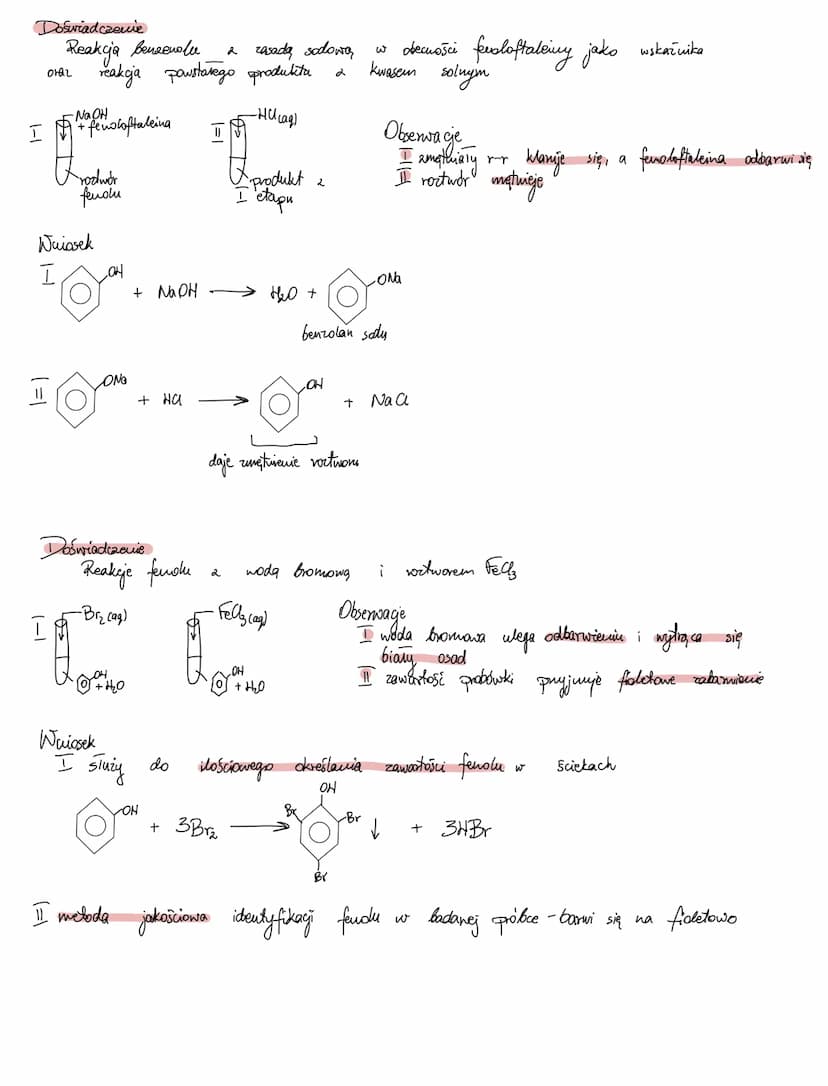 Doświadczenie
Reakcja benzenolu z zasadą sodową w obecności fenoloftaleiny jako wskaźnika
oraz reakcja powstałego produktu z kwasem solnym
I NaOH
+ fenoloftaleina
roztwór
fenolu
II HCl(aq)
produkt z
I etapu
Obserwacje
I zmętniały r-r klaruje się, a fenoloftaleina odbarwi się
II roztwór mętnieje
Wniosek
I OH + NaOH → H₂O + ONa
benzolan sodu
II ONa + HCl → OH + NaCl
daje zmętnienie roztworu
Doświadczenie
Reakcje fenolu z wodą bromową i roztworem FeCl₃
I Br₂ (aq)
OH
+ H₂O
FeCl₃ (aq)
OH
+ H₂O
Obserwacje
I woda bromowa ulega odbarwieniu i wytrąca się
biały osad
II zawartość probówki przyjmuje fioletowe zabarwienie
Wniosek
I służy do ilościowego określania zawartości fenolu w ściekach
OH
OH + 3Br₂ → Br Br ↓ + 3HBr
Br
II metoda jakościowa identyfikacji fenolu w badanej próbce - barwi się na fioletowo